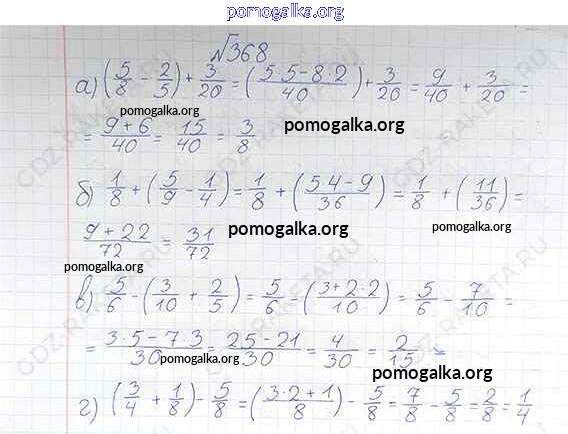 pomogalka.org
№368
а) (5/8 - 2/5) + 3/20 = (5·5-8·2/40) + 3/20 = 9/40 + 3/20 =
pomogalka.org
= 9+6/40 = 15/40 = 3/8 pomogalka.org
б) 1/8 + (5/9 - 1/4) = 1/8 + (5·4-9/36) = 1/8 + (11/36) =
9+22/72 = 31/72 pomogalka.org pomogalka.org
pomogalka.org
в) 5/6 - (3/10 + 2/5) = 5/6 = (3+2·2/10) = 5/6 - 7/10 =
= 3·5-7 3/30 = 25-21/30 = 4/30 = 2/15
pomogalka.org pomogalka.org
г) (3/4 + 1/8) - 5/8 = (3·2+1/8) - 5/8 = 7/8 - 5/8 = 2/8 = 1/4
GDZ-RAKETA.RU